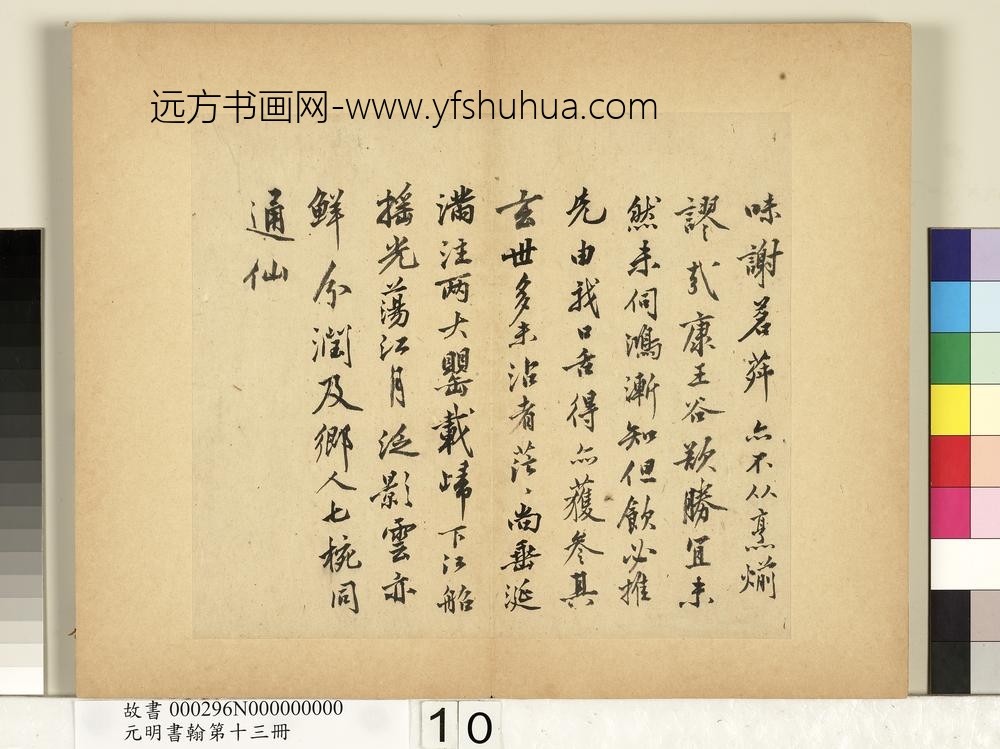 远方书画网-www.yfshuhua.com
味謝茗荈亦不从烹煎
謬哉康王谷歎勝宜未
然未伺鴻漸知但飲必推
先由我口舌得亦獲參其
玄世多未沾者茫、尚垂涎
滿注两大甖載歸下江船
搖光蕩江月泛影雲亦
鮮分潤及鄉人七椀同
通仙
故書 000296N000000000
元明書翰第十三冊
10